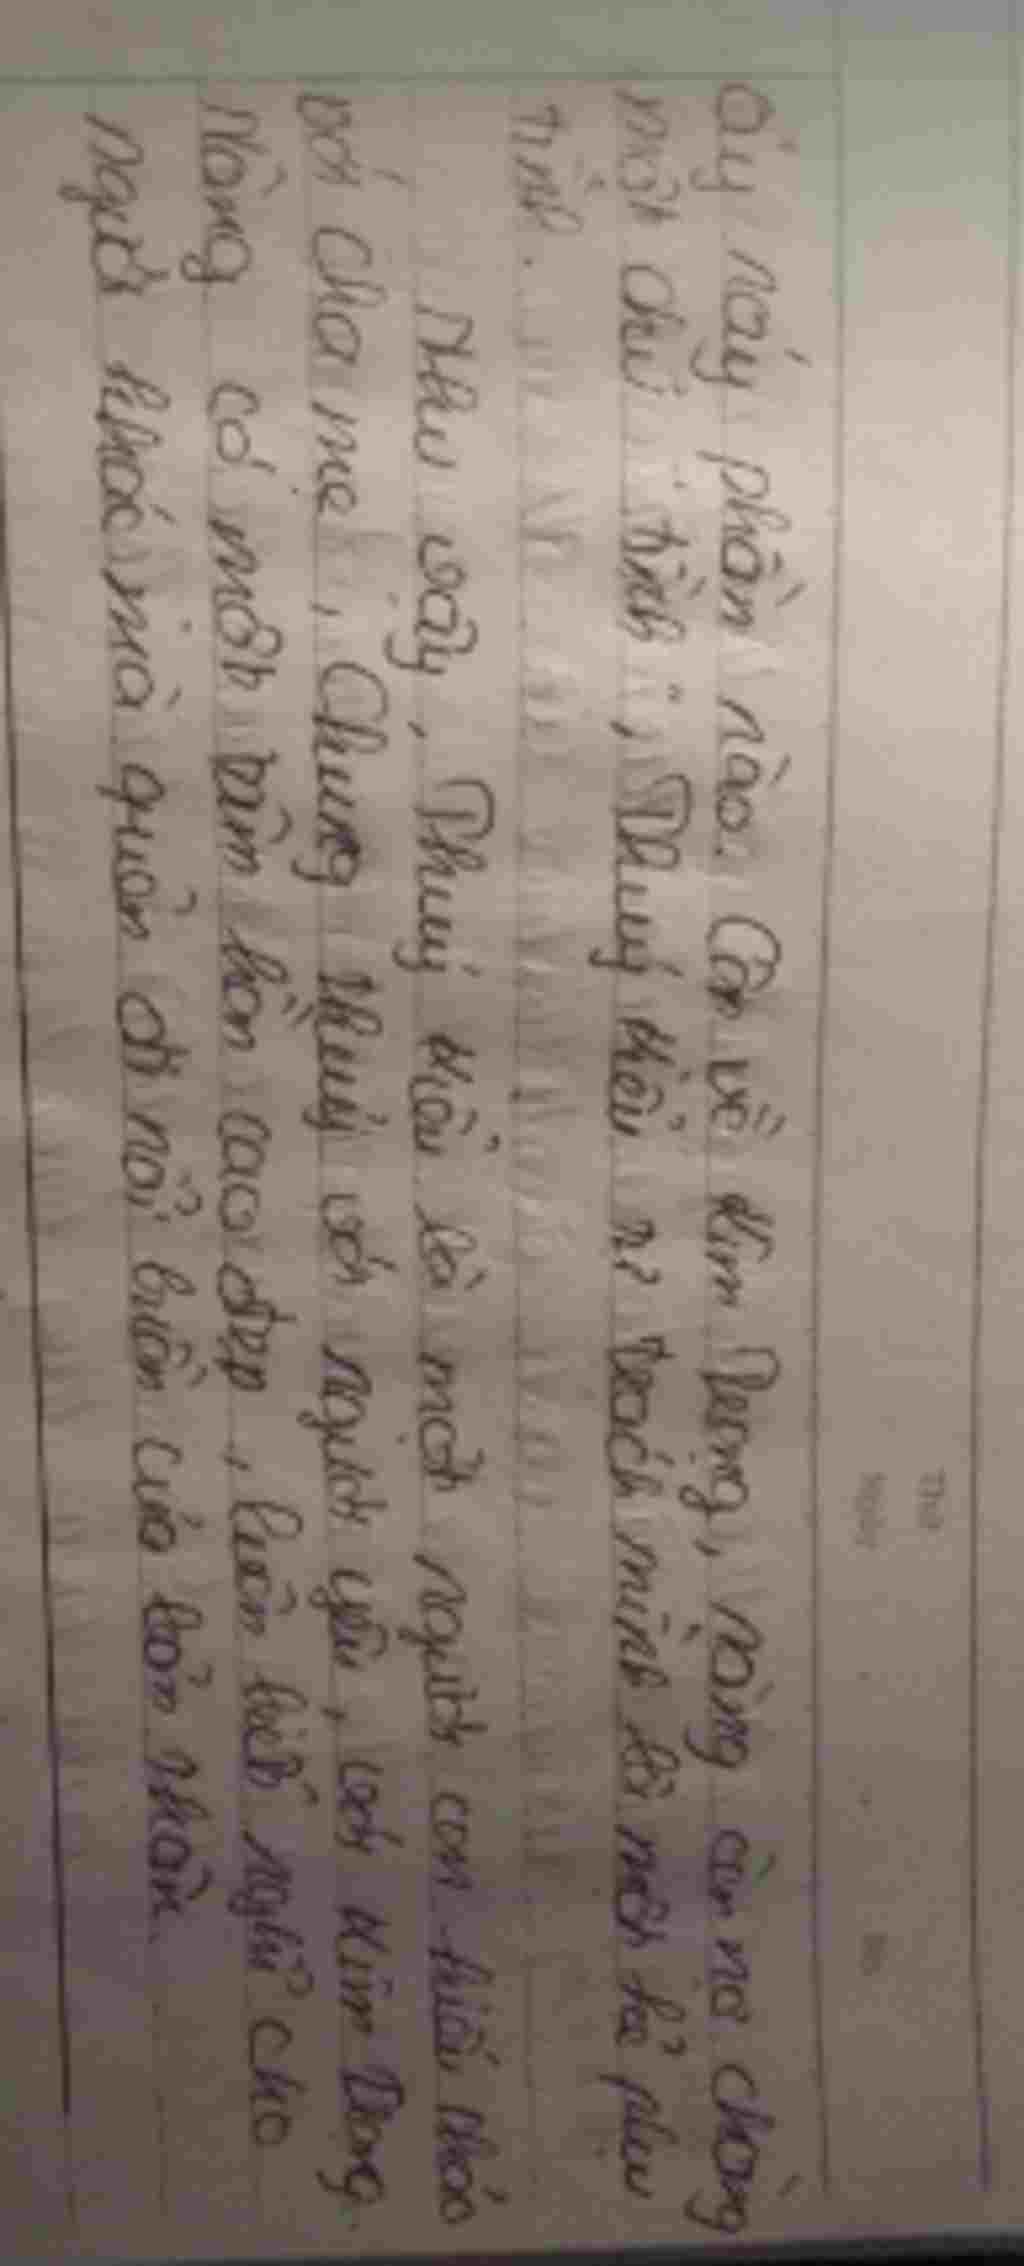 áy náy phần nào. Còn về Kim Trọng, nàng còn nợ chàng
một chữ "tình", Thuý Kiều tự trách mình là một kẻ phụ
tình.
Như vậy, Thuý Kiều là một người con hiếu thảo
với cha mẹ, Chung thuỷ với người yêu, với Kim Trọng.
Nàng có một tâm hồn cao đẹp, luôn biết nghĩ cho
người khác mà quên đi nỗi buồn của bản thân.
Thứ
Ngày